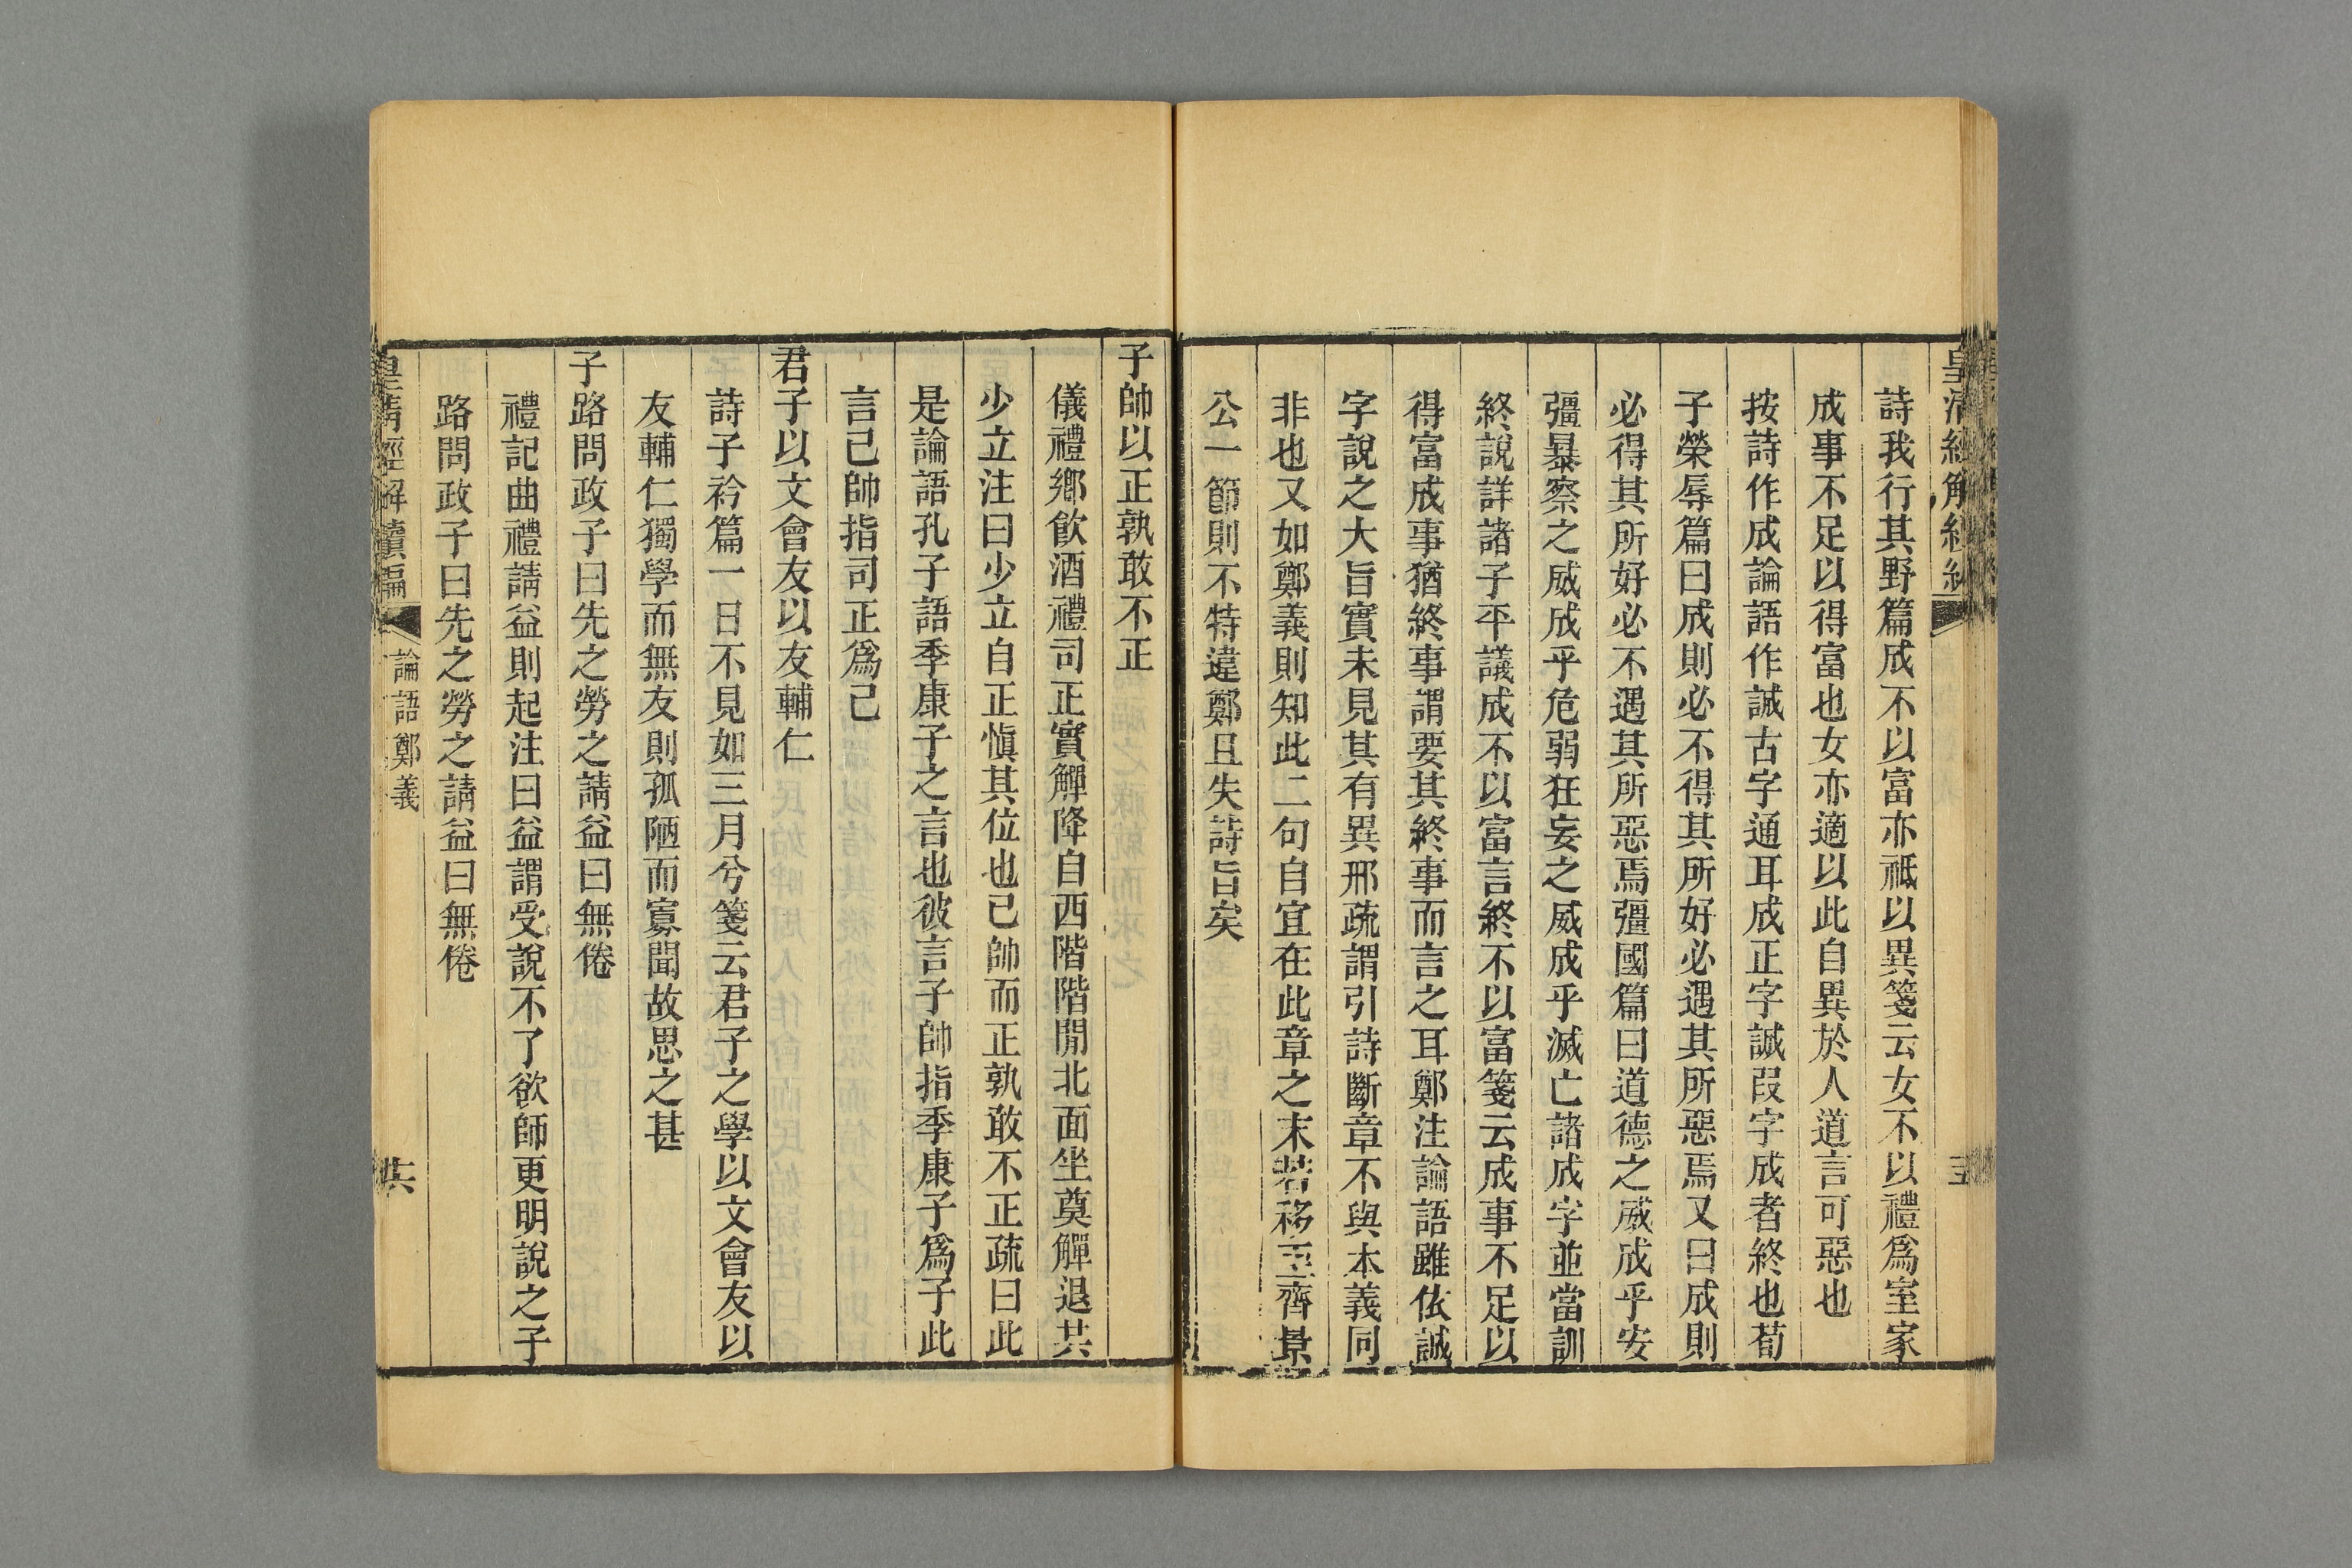 詩我行其野篇成不以富亦祗以異箋云女不以禮爲室家
成事不足以得富也女亦適以此自異於人道言可惡也
按詩作成論語作誠古字通耳成正字誠叚字成者終也荀
子榮辱篇曰成則必不得其所好必遇其所惡焉又曰成則
必得其所好必不遇其所惡焉彊國篇曰道德之威成乎安
彊暴察之威成乎危弱狂妄之威成乎滅亡諸成字並當訓
終說詳諸子平議成不以富言終不以富箋云成事不足以
得富成事猶終事謂要其終事而言之耳鄭注論語雖依誠
字說之大旨實未見其有異邢疏謂引詩斷章不與本義同
非也又如鄭義則知此二句自宜在此章之末若移至齊景
公一節則不特違鄭且失詩旨矣
子帥以正孰敢不正
儀禮鄉飲酒禮司正實觶降自西階階閒北面坐奠觶退共
少立注曰少立自正愼其位也己帥而正孰敢不正疏曰此
是論語孔子語季康子之言也彼言子帥指季康子爲子此
言己帥指司正爲己
君子以文會友以友輔仁
詩子衿篇一日不見如三月兮箋云君子之學以文會友以
友輔仁獨學而無友則孤陋而寡聞故思之甚
子路問政子曰先之勞之請益曰無倦
禮記曲禮請益則起注曰益謂受說不了欲師更明說之子
路問政子曰先之勞之請益曰無倦
皇清經解續編
論語鄭義
共